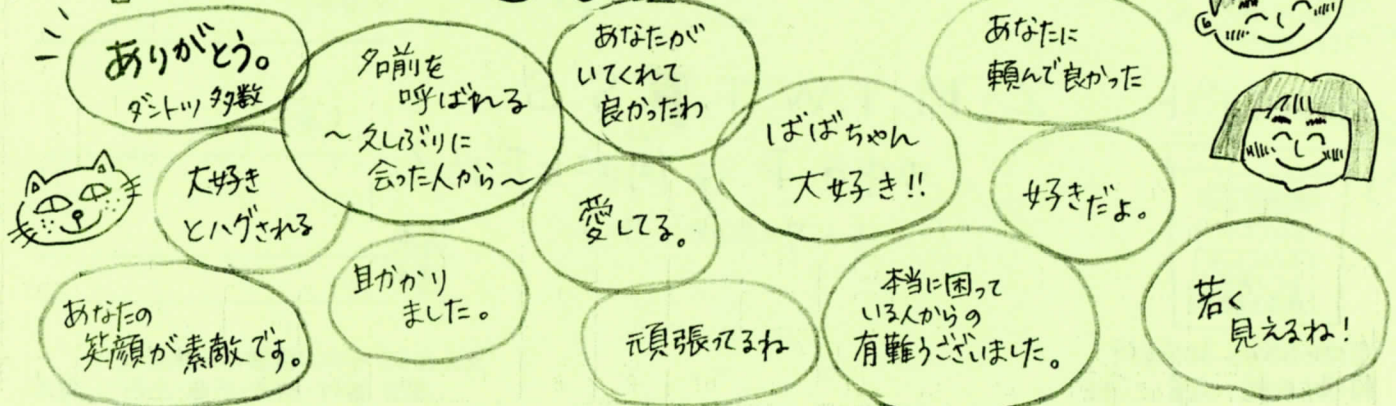 ありがとう。
ダントツ多数
名前を
呼ばれる
〜久しぶりに
会った人から〜
あなたが
いてくれて
良かったわ
あなたに
頼んで良かった
大好き
とハグされる
愛してる。
ばばちゃん
大好き!!
好きだよ。
あなたの
笑顔が素敵です。
助かり
ました。
頑張ってるね
本当に困って
いる人からの
有難うございました。
若く
見えるね!